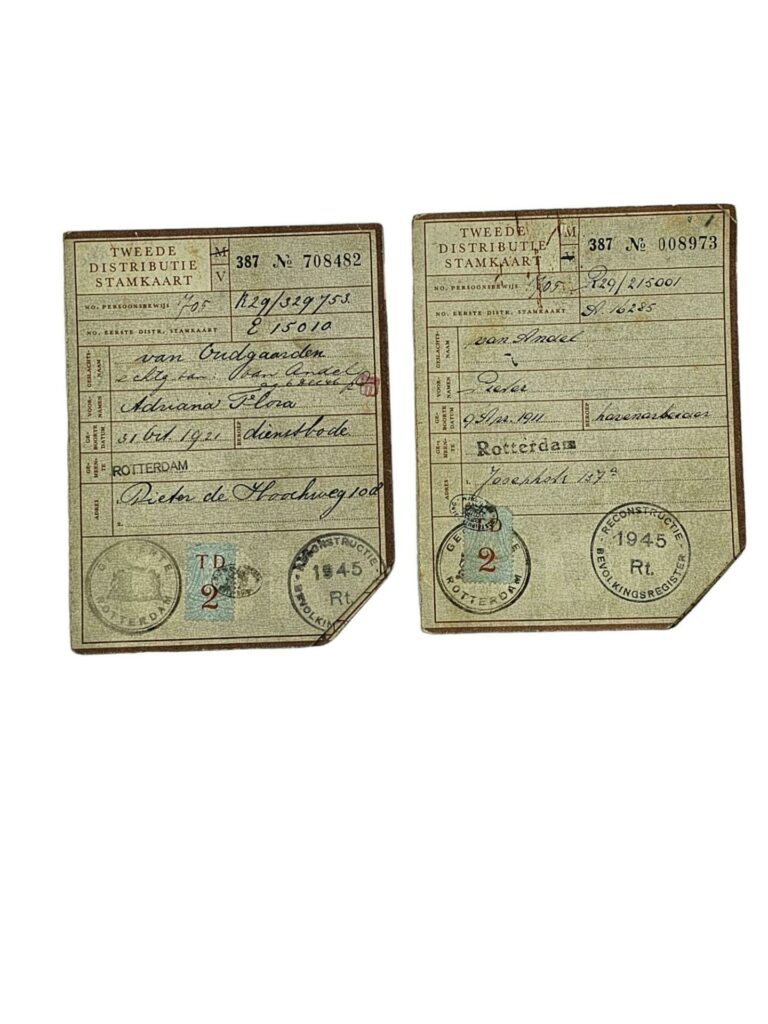 TWEEDE
DISTRIBUTIE
STAMKAART
M
V
387 № 708482
NO. PERSOONSBEWIJS 705 R29/329753
NO. EERSTE DISTR. STAMKAART E 15010
GESLACHTS-
NAAM
van Oudgaarden
echtg van van Andel
VOOR-
NAMEN
Adriana Flora
GE-
BOORTE
DATUM
31 Oct. 1921
BEROEP
dienstbode
GE-
MEEN-
TE
ROTTERDAM
ADRES
Pieter de Hoochweg 108
GEMEENTE
ROTTERDAM
TD
2
RECONSTRUCTIE
1945
Rt.
BEVOLKIN
TWEEDE
DISTRIBUTIE
STAMKAART
M
V
387 № 008973
1
NO. PERSOONSBEWIJS 705 R29/215001
NO. EERSTE DISTR. STAMKAART A. 16285
GESLACHTS-
NAAM
van Andel
VOOR-
NAMEN
Pieter
GE-
BOORTE
DATUM
9 Apr. 1911
BEROEP
havenarbeider
GE-
MEEN-
TE
Rotterdam
ADRES
1. Josephstr 137a
GE
ROTTERDAM
D
2
RECONSTRUCTIE
1945
Rt.
BEVOLKINGSREGISTER